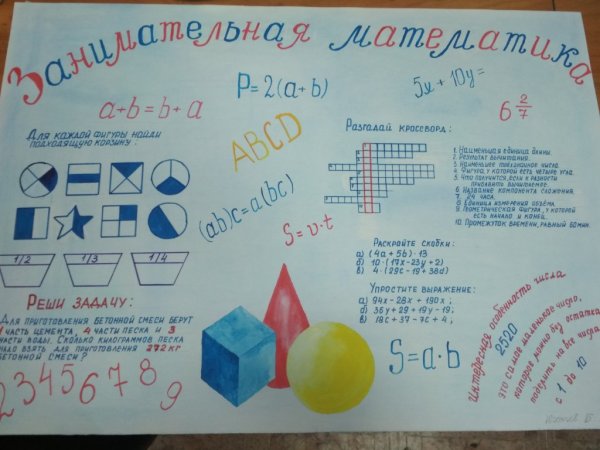 Занимательная математика
a+b=b+a
P=2(a+b)
5x+10y=
6 2/7
ABCD
(ab)c=a(bc)
S=v·t
Для каждой фигуры найди
подходящую корзину:
1/2
1/3
1/4
Реши задачу:
Для приготовления бетонной смеси берут
1 часть цемента, 4 части песка и 3
части воды. Сколько килограммов песка
надо взять для приготовления 272 кг
бетонной смеси?
2 3 4 5 6 7 8 9
Разгадай кроссворд:
1. Наименьшая единица длины.
2. Результат вычитания.
3. Наименьшее трёхзначное число.
4. Фигура, у которой есть четыре угла.
5. Что получится, если к разности
прибавить вычитаемое.
6. Название компонента сложения.
7. 24 часа.
8. Единица измерения объёма.
9. Геометрическая фигура, у которой
есть начало и конец.
10. Промежуток времени, равный 60мин.
Раскройте скобки:
а) (4a + 5b) · 13
б) 10 · (17x - 23y + 2)
в) 4 · (29c - 19 + 38d)
Упростите выражение:
а) 94x - 28x + 190x ;
б) 35y + 29 + 19y - 19;
в) 18c + 37 - 7c + 4 ;
S=a·b
Интересная особенность числа
2520
это самое маленькое число,
которое можно без остатка
поделить на все числа
с 1 до 10